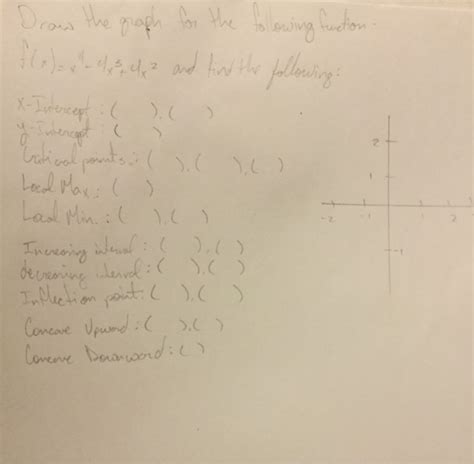 Draw the graph for the following function.
f(x) = x⁴ - 4x³ + 4x² and find the following:
x-Intercept : ( ), ( )
y-Intercept : ( )
Critical points : ( ), ( ), ( )
Local Max : ( )
Local Min. : ( ), ( )
Increasing interval : ( ), ( )
decreasing interval : ( ), ( )
Inflection point : ( ), ( )
Concave Upward : ( ), ( )
Concave Downward : ( )
2
1
-2 -1 1 2
-1